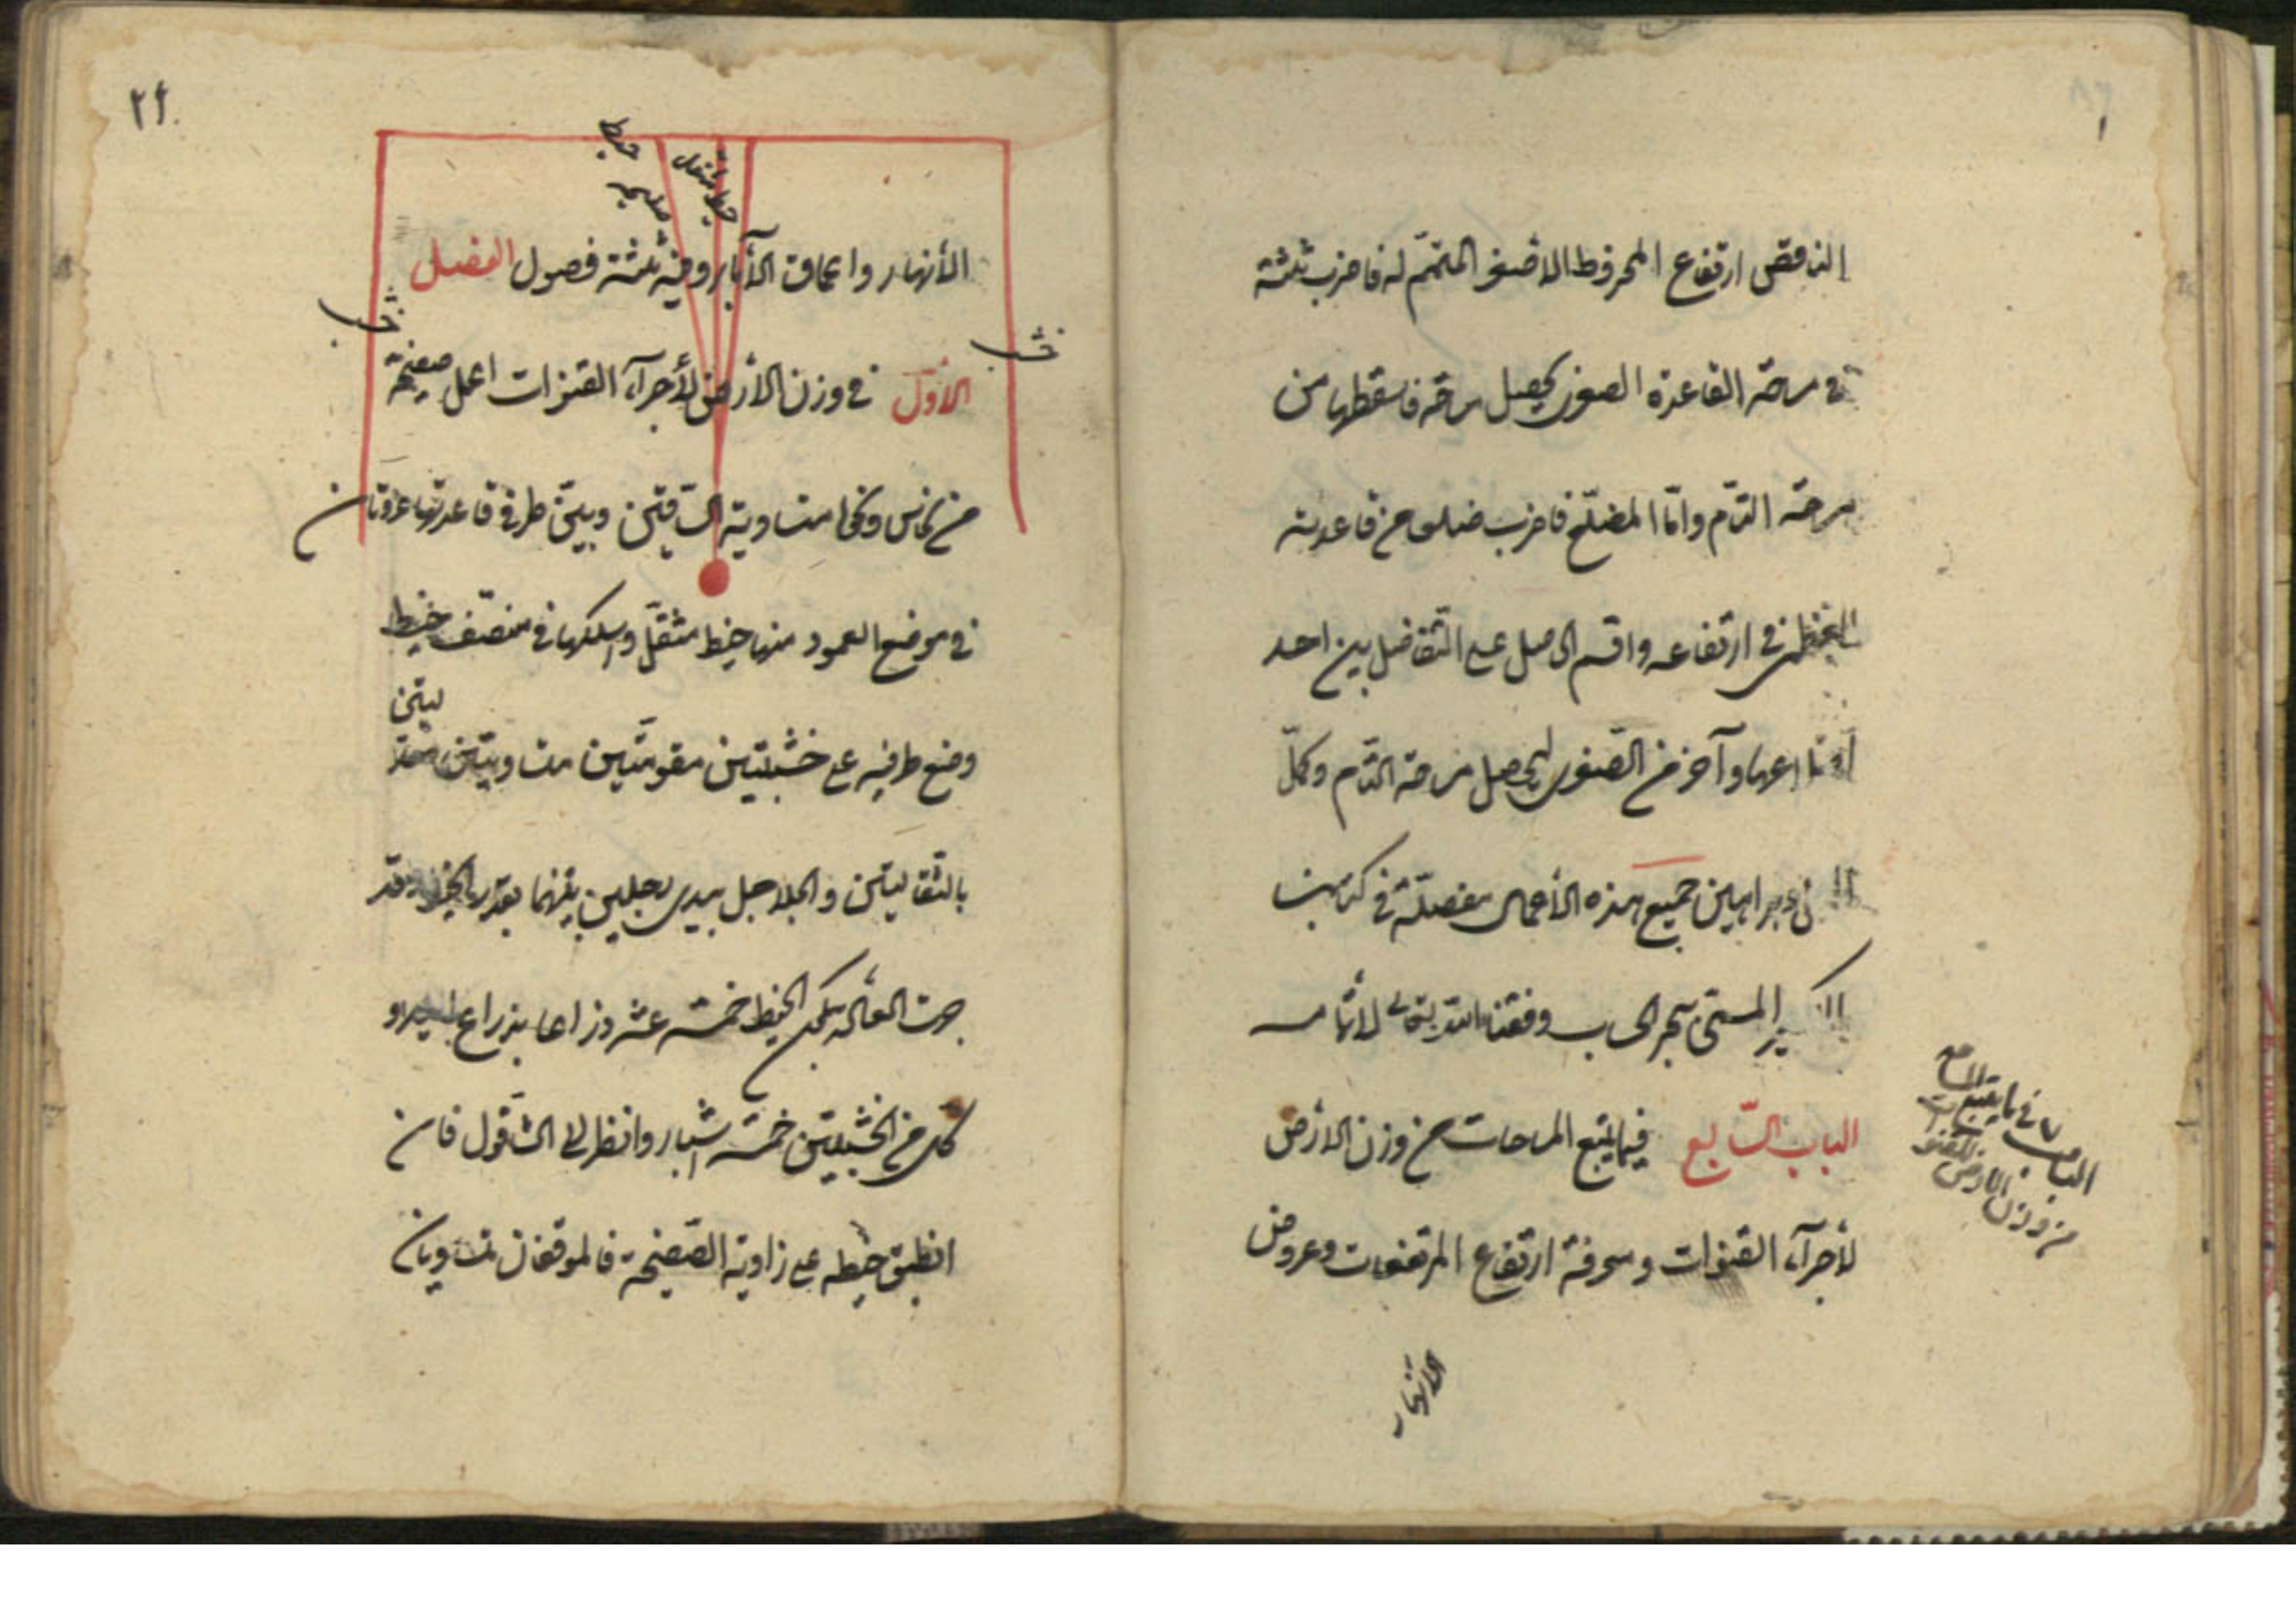 الناقص ارتفاع المخروط الاصغر المتمّم له فاضرب ثلثه
في مساحة القاعدة الصغرى يحصل مساحته فاسقطها من
مساحة التامّ وامّا المضلّع فاضرب ضلعا من قاعدته
العظمى في ارتفاعه واقسم الحاصل على التفاضل بين احد
اضلاعها وآخر من الصّغرى ليحصل مساحة التامّ وكمّل
براهين جميع هذه الأعمال مفصّلة في كتابنا
الكبير المسمّى ببحر الحساب وفقنا الله تعالى لاتمامه
الباب السّابع فيما يتبع المساحات من وزن الارض
لأجرآء القنوات ومعرفة ارتفاع المرتفعات وعروض
الباب ٧ في ما يتبع
من وزن الارض
الانهار
٢٢
خيط
خيط الشاقول
الأنهار واعماق الآبار وفيه ثلثة فصول الفصل
خشب
خشب
الأوّل في وزن الارض لأجرآء القنوات اعمل صفيحة
من نحاس ونحوه متساوية السّاقين وبين طرفي قاعدتها عروتان
في موضع العمود منها خيط مثقّل واسلكها في منتصف خيط
وضع طرفيه على خشبتين مقومتين متساويتين معدّ
ليتين
بالثقالتين والجلاجل بيدي رجلين بينهما بقدر الخيط وقد
جرت العادة بكون الخيط خمسة عشر ذراعا بذراع اليد و
كل من الخشبتين خمسة اشبار وانظر الى الشّاقول فان
انطبق خيطه على زاوية الصّفيحة فالموقفان متساويان